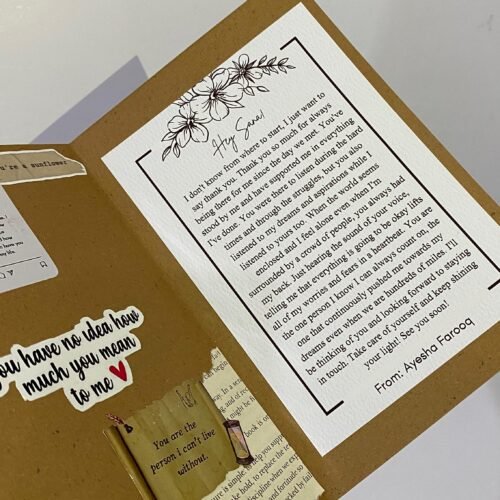 you're a sunflower
Hey Sana!
I don't know from where to start, I just want to
say thank you. Thank you so much for always
being there for me since the day we met. You've
stood by me and have supported me in everything
I've done. You were there to listen during the hard
times and through the struggles, but you also
listened to my dreams and aspirations while I
listened to yours too. When the world seems
enclosed and I feel alone even when I'm
surrounded by a crowd of people, you always had
my back. Just hearing the sound of your voice,
telling me that everything is going to be okay lifts
all of my worries and fears in a heartbeat. You are
the one person I know I can always count on, the
one that continuously pushed me towards my
dreams even when we are hundreds of miles. I'll
be thinking of you and looking forward to staying
in touch. Take care of yourself and keep shining
your light! See you soon!
From: Ayesha Farooq
you have no idea how
much you mean
to me
You are the
person i can't live
without.